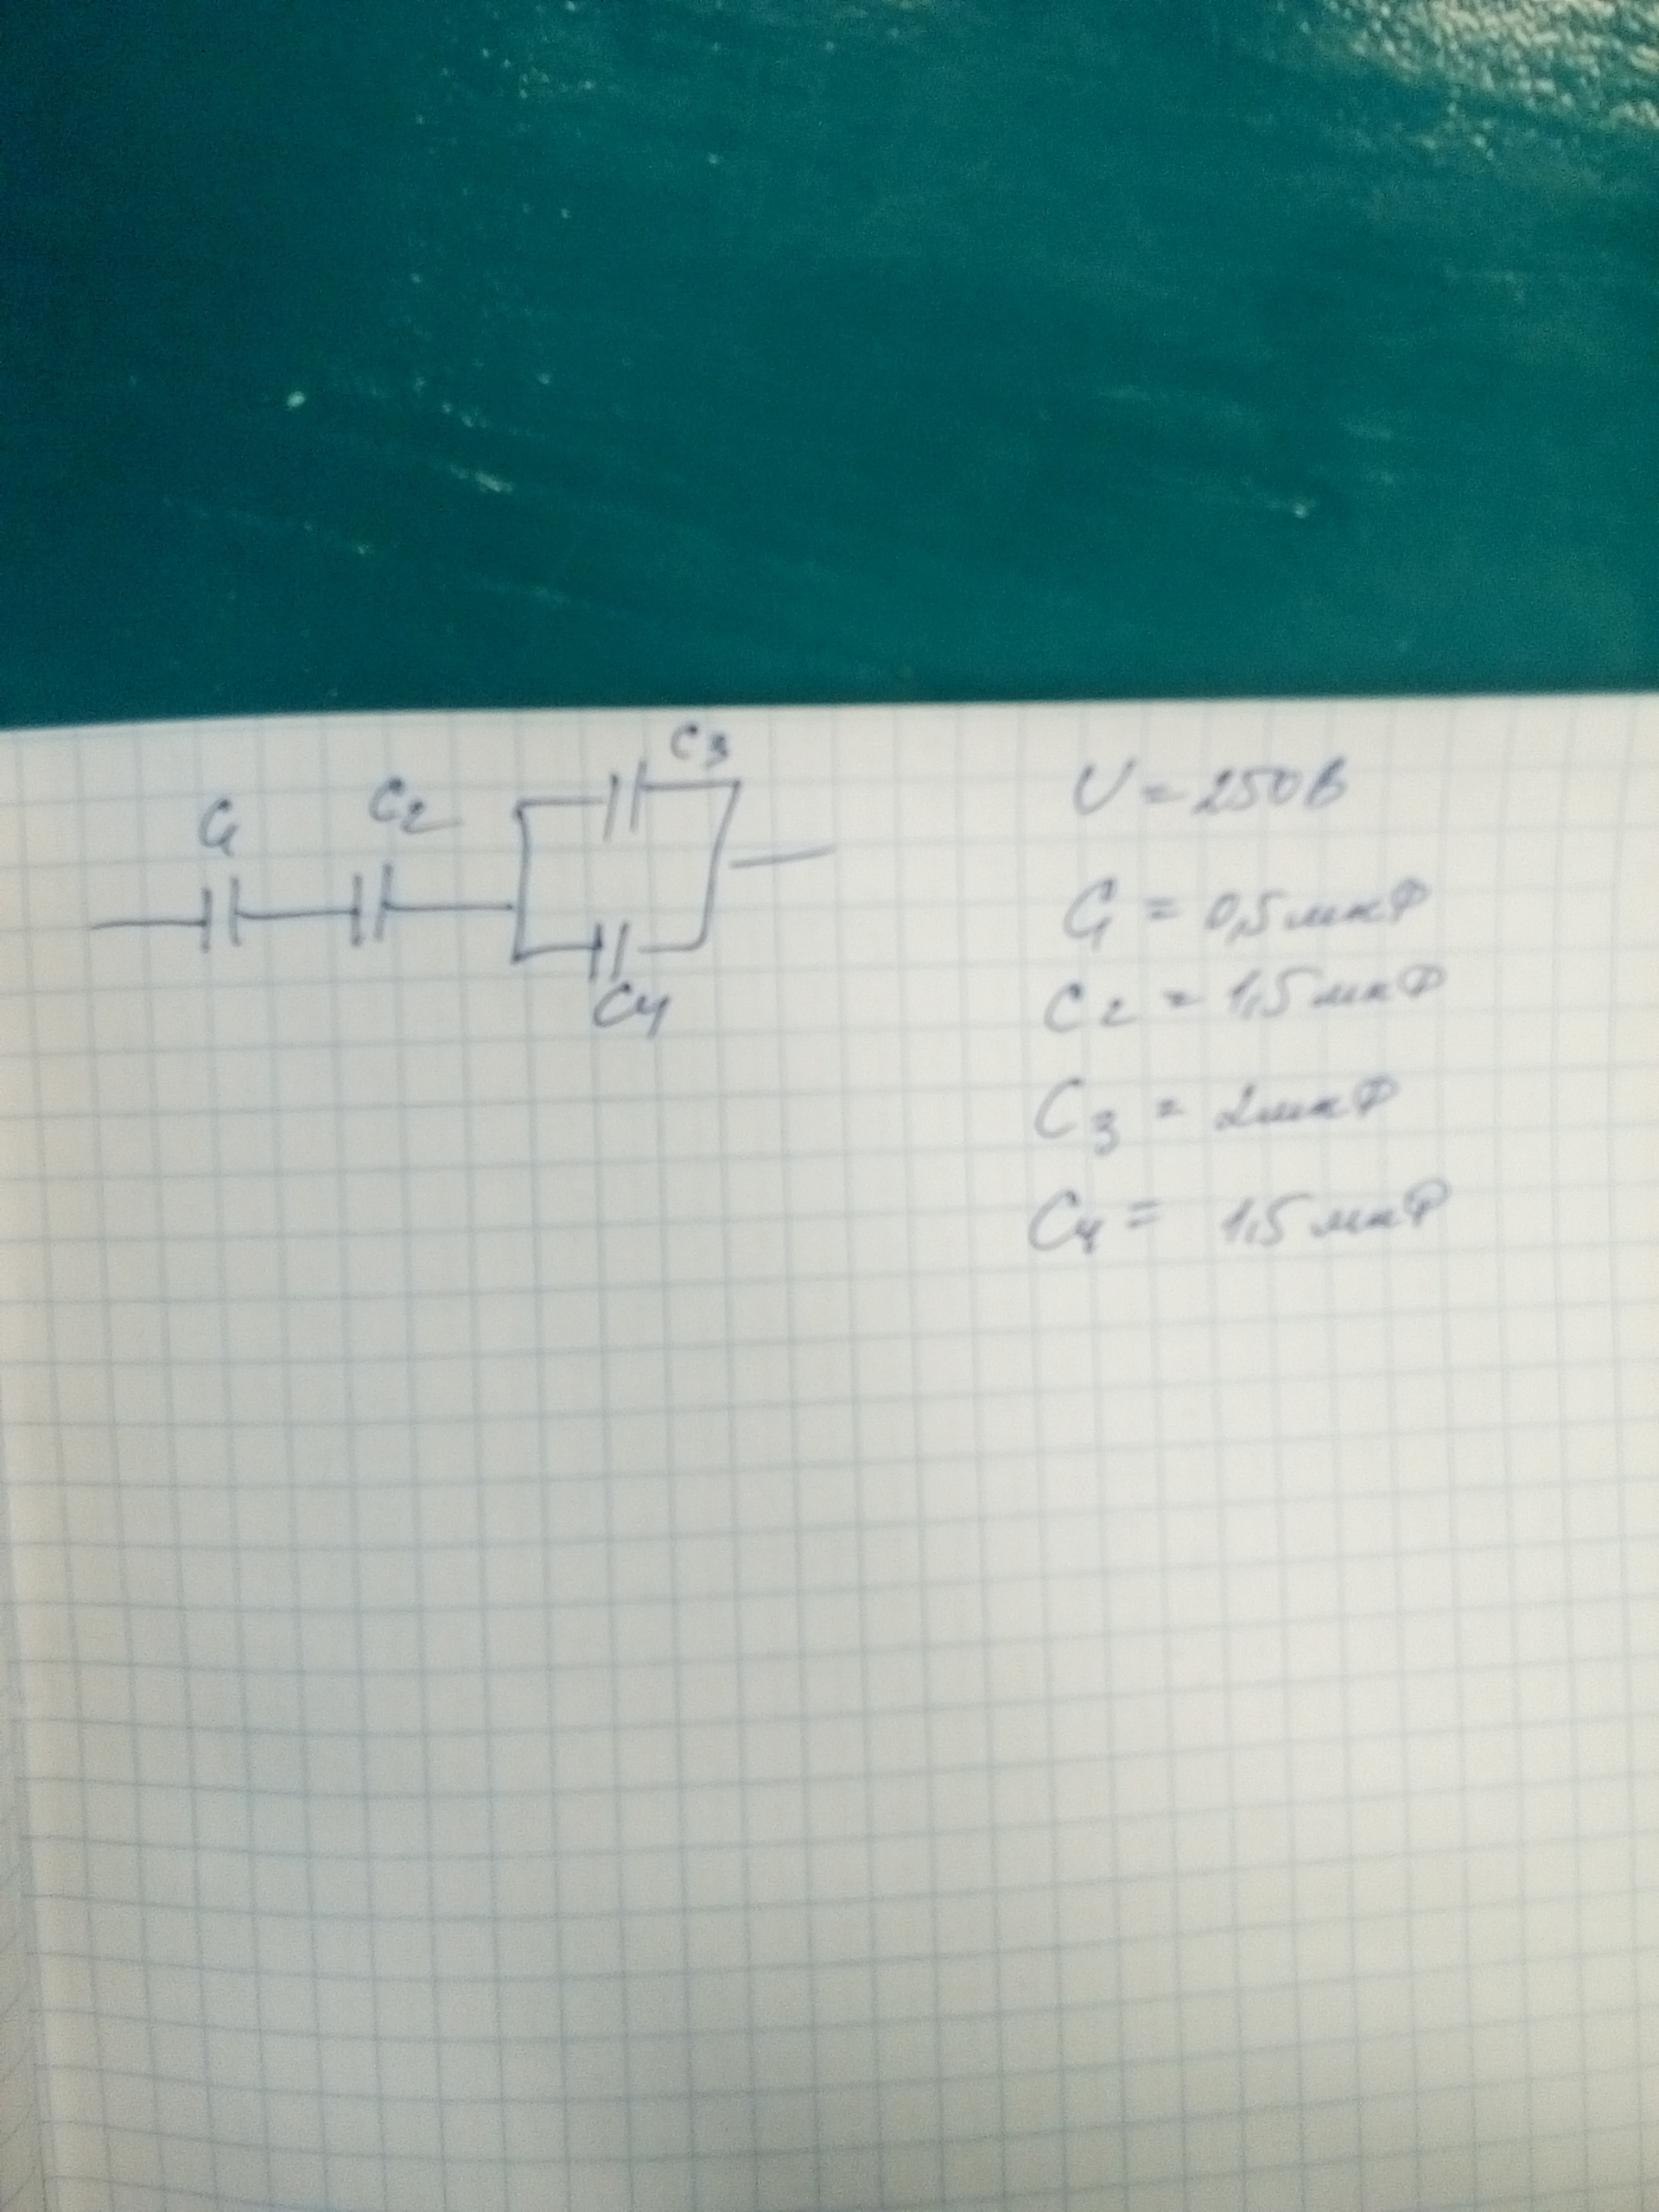 C1
C2
C3
C4
U = 250В
C1 = 0,5 мкФ
C2 = 1,5 мкФ
C3 = 2 мкФ
C4 = 1,5 мкФ